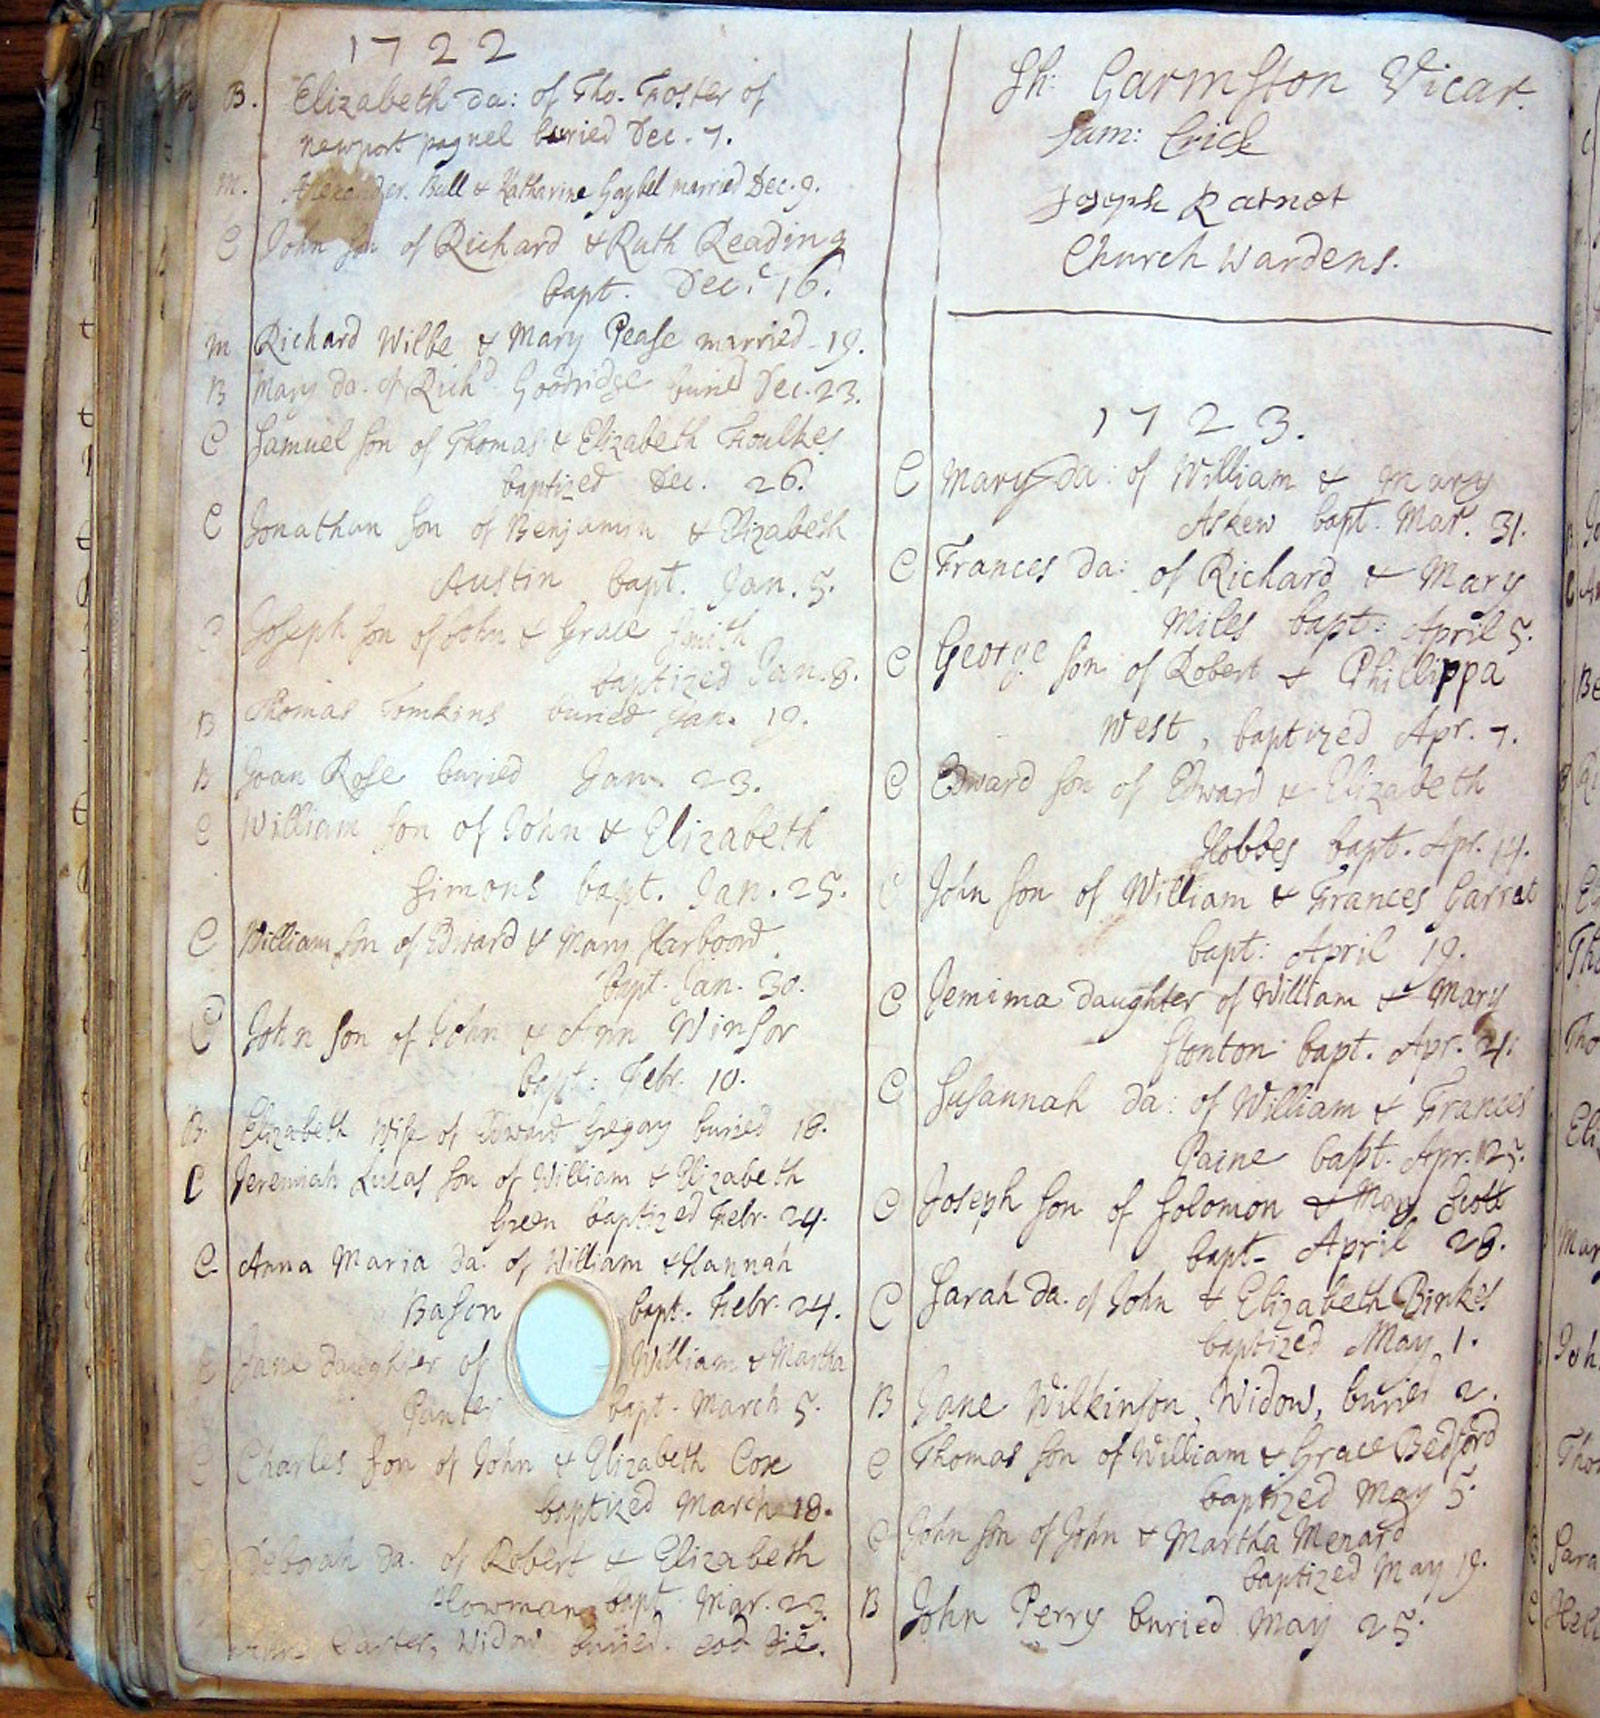 1722
B. Elizabeth da: of Tho. Foster of
newport pagnel buried Dec. 7.
m. Alexander Bull & Katharine Gaybel married Dec. 9.
C John son of Richard & Ruth Reading
bapt. Dec.c 16.
m Richard Wilbe & Mary Pease married 19.
B Mary da. of Richd Goodridge buried Dec. 23.
C Samuel son of Thomas & Elizabeth Foulkes
baptized Dec. 26.
C Jonathan son of Benjamin & Elizabeth
Austin bapt. Jan. 5.
C Joseph son of John & Grace Smith
baptized Jan. 8.
B Thomas Tomkins buried Jan. 19.
B Joan Rose buried Jan. 23.
C William son of John & Elizabeth
Simons bapt. Jan. 25.
C William son of Edward & Mary Harboord
bapt. Jan. 30.
C John son of John & Ann Winsor
bapt: Febr. 10.
B. Elizabeth Wife of Edward Gregory buried 18.
C Jeremiah Lucas son of William & Elizabeth
Green baptized Febr. 24.
C Anna Maria da. of William & Hannah
Bason bapt. Febr. 24.
C Jane daughter of William & Martha
Panter bapt. March 5.
C Charles son of John & Elizabeth Coxe
baptized March 18.
C Deborah da. of Robert & Elizabeth
Howman bapt Mar. 23.
Carter, Widow buried eod die.
Sh: Garmston Vicar.
Sam: Crick
Joseph Ratnet
Church Wardens.
1723.
C Mary da: of William & Mary
Askew bapt. Mar. 31.
C Frances da: of Richard & Mary
Miles bapt: April 5.
C George son of Robert & Phillippa
West, baptized Apr. 7.
C Edward son of Edward & Elizabeth
Hobbes bapt. Apr. 14.
C John son of William & Frances Garrat
bapt: April 19.
C Jemima daughter of William & Mary
Stonton bapt. Apr. 21.
C Susannah da: of William & Frances
Paine bapt. Apr. 25.
C Joseph son of Solomon & Mary Scott
bapt. April 28.
C Sarah da. of John & Elizabeth Binkes
baptized May 1.
B Jane Wilkinson, Widow, buried 2.
C Thomas son of William & Grace Bedford
baptized May 5.
C John son of John & Martha Menard
baptized May 19.
B John Perry buried May 25.